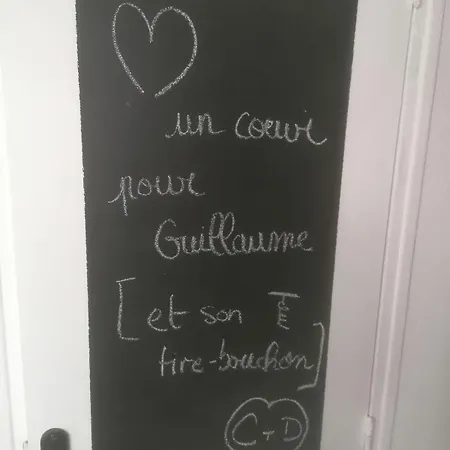 un coeur
pour
Guillaume
[et son
tire-bouchon]
C + D